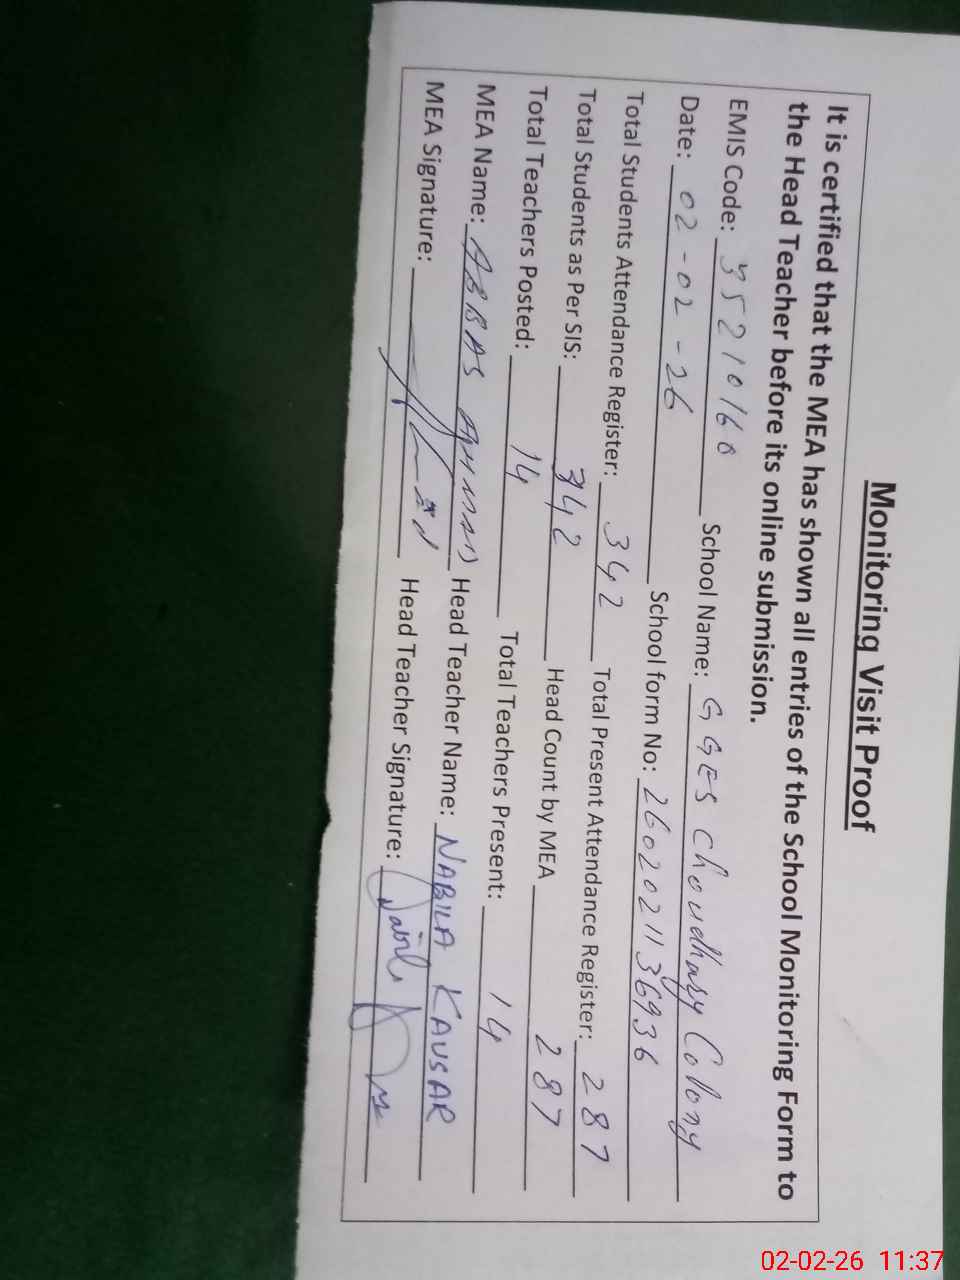 Monitoring Visit Proof
It is certified that the MEA has shown all entries of the School Monitoring Form to
the Head Teacher before its online submission.
EMIS Code: 35210160 School Name: GGES Choudhary Colony
Date: 02-02-26 School form No: 2602021136936
Total Students Attendance Register: 342 Total Present Attendance Register: 287
Total Students as Per SIS: 342 Head Count by MEA 287
Total Teachers Posted: 14 Total Teachers Present: 14
MEA Name: ABBAS Head Teacher Name: NABILA KAUSAR
MEA Signature: Head Teacher Signature:
02-02-26 11:37